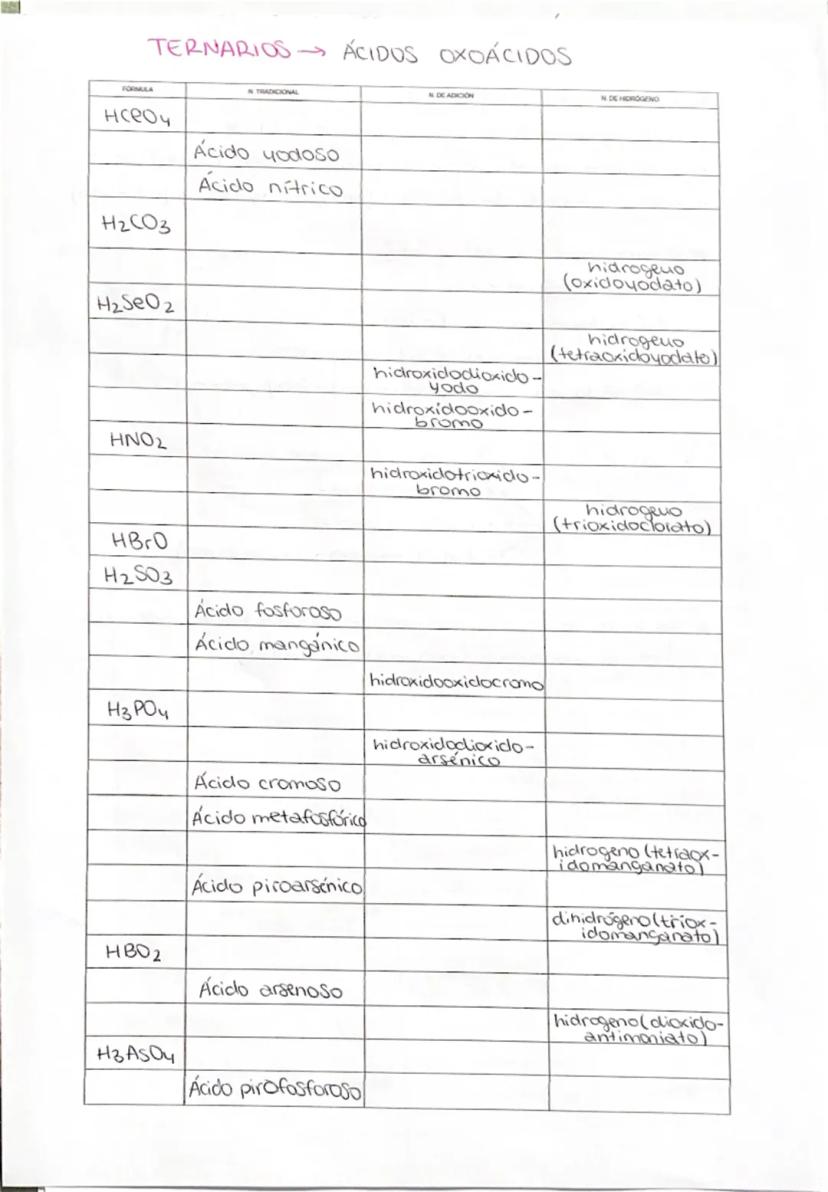 TERNARIOS → ÁCIDOS OXOÁCIDOS
FÓRMULA N. TRADICIONAL N. DE ADICIÓN N. DE HIDRÓGENO
HClO4
Ácido yodoso
Ácido nítrico
H2CO3
hidrogeno
(oxidoyodato)
H2SeO2
hidrogeno
(tetraoxidoyodato)
hidroxidodioxido-
yodo
hidroxidooxido-
bromo
HNO2
hidroxidotrioxido-
bromo
hidrogeno
(trioxidoclorato)
HBrO
H2SO3
Ácido fosforoso
Ácido mangánico
hidroxidooxidocromo
H3PO4
hidroxidodioxido-
arsénico
Ácido cromoso
Ácido metafosfórico
hidrogeno (tetraox-
idomanganato)
Ácido piroarsénico
dihidrógeno(triox-
idomanganato)
HBO2
Ácido arsenoso
hidrogeno(dioxido-
antimoniato)
H3AsO4
Ácido pirofosforoso